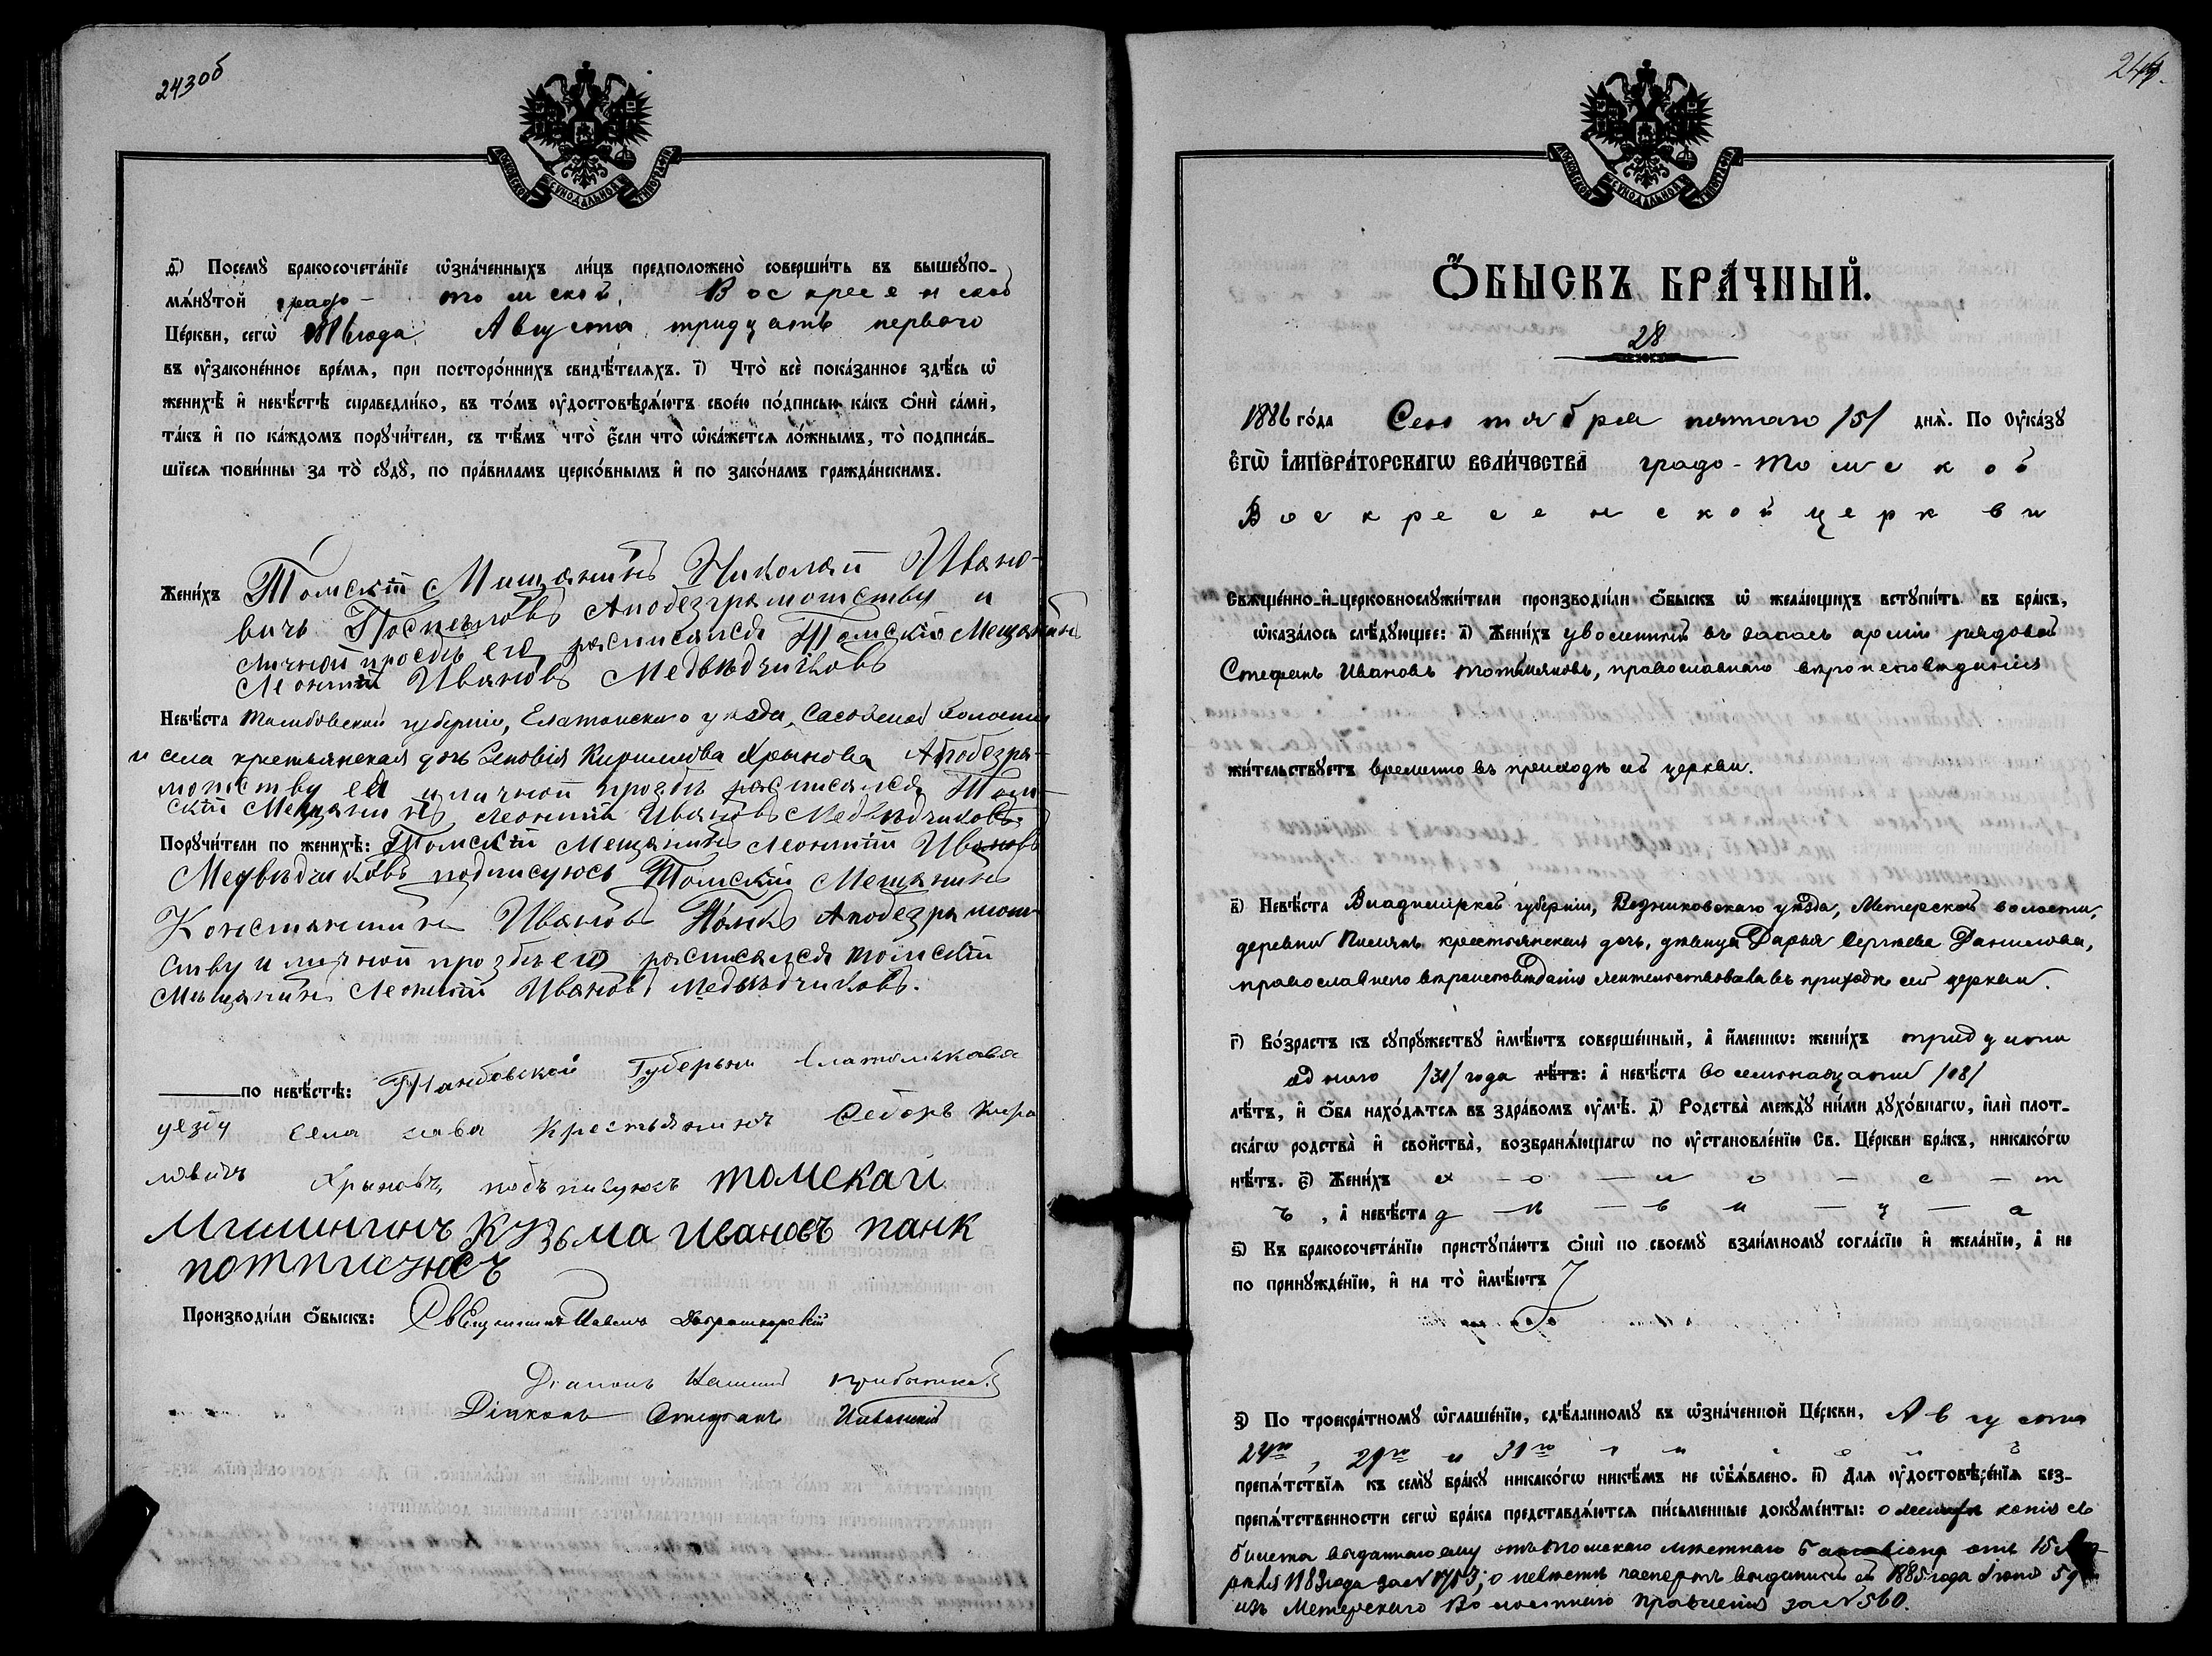 243об
МОСКОВСКОЙ СѴНОДАЛЬНОЙ ТИПОГРАФІИ
д҃) Посемꙋ̀ бракосочета́нїе ѡ҆зна́ченныхъ ли́цъ предположено̀ соверши́ть въ вышеꙋпо-
мѧ́нꙋтой градо-томской, Воскресенской
Це́ркви, сегѡ̀ 1886 года Августа тридцать перваго
въ ᲂу҆законе́нное вре́мѧ, при посторо́ннихъ свидѣ́телѧхъ. і҃) Что̀ всѐ пока́занное здѣ́сь ѡ҆
женихѣ̀ и҆ невѣ́стѣ справедли́во, въ то́мъ ᲂу҆достовѣрѧ́ютъ свое́ю по́дписью ка́къ ѻ҆нѝ са́ми,
та́къ и҆ по ка́ждомъ порꙋчи́тели, съ тѣ́мъ что̀ є҆́сли что̀ ѡ҆ка́жетсѧ ло́жнымъ, то̀ подписа́в-
шїесѧ пови́нны за то̀ сꙋдꙋ̀, по пра́виламъ церко́внымъ и҆ по зако́намъ гражда́нскимъ.
Жени́хъ Томскій Мищанинъ Николай Ивано-
вичъ Поспеловъ Апобезграмотству и
личной прозьбе его расписался Томскій Мещанинъ
Леонтій Ивановъ Медвѣдчиковъ
Невѣ́ста Тамбовской губерніи, Елатомскаго уѣзда, Сасовской волости
и села крестьянская дочь Зиновія Кирилова Хрынова Апобезгра-
мотству ея и личной прозбѣ расписался Том-
скій Мещанинъ Леонтій Ивановъ Медвѣдчиковъ
Порꙋчи́тели по женихѣ̀: Томскій Мещанинъ Леонтій Ивановъ
Медвѣдчиковъ подписуюсь Томскій Мещанинъ
Константинъ Ивановъ Панкъ Апобезграмот
ству и личной прозбѣ его расписался томскій
Мещанинъ Леонтій Ивановъ Медвѣдчиковъ.
по невѣ́стѣ: Танбовской Губерьни Елатомькава
уезду села сава Крестьянинъ Федоръ Кира
ловичъ Хрыновъ, подъписуюсь томскай
Мишингинъ Кузьма Ивановъ панк
потписуюсъ
Производи́ли ѻ҆́быскъ: Священникъ Павелъ
Діаконъ Стефанъ
244.
МОСКОВСКОЙ СѴНОДАЛЬНОЙ ТИПОГРАФІИ
Ѻ҆́БЫСКЪ БРА́ЧНЫЙ.
28
1886 го́да Сентября пятаго /5/ днѧ̀. По ᲂу҆ка́зꙋ
Є҆гѡ̀ І҆мпера́торскагѡ вели́чества градо-Томской
Воскресенской церкви
Свѧще́нно-и҆-церковнослꙋжи́тели производи́ли ѻ҆́быскъ ѡ҆ жела́ющихъ встꙋпи́ть въ бра́къ,
ѡ҆каза́лось слѣ́дꙋющее: а҃) Жени́хъ уволенный въ запасъ арміи рядовой
Стефанъ Ивановъ Тотмяковъ, православнаго вѣроисповѣданія
жи́тельствꙋетъ временно въ приходѣ сей церкви.
в҃) Невѣ́ста Владимірской губерніи, Вязниковскаго уѣзда, Мстерской волости,
деревни крестьянская дочь, дѣвица Дарья Сергѣева Данилова,
православнаго вѣроисповѣданія жительствовала въ приходѣ сей церкви.
г҃) Во́зрастъ къ сꙋпрꙋ́жествꙋ и҆мѣ́ютъ соверше́нный, а҆ и҆́меннѡ: жени́хъ тридцати
одного /31/ года лѣ́тъ: а҆ невѣ́ста восемнадцати /18/
лѣ́тъ, и҆ ѻ҆́ба нахо́дѧтсѧ въ здра́вомъ ᲂу҆мѣ̀. д҃) Родства̀ междꙋ̀ ни́ми дꙋхо́внагѡ, и҆лѝ плот-
ска́гѡ родства̀ и҆ сво́йства̀, возбранѧ́ющагѡ по ᲂу҆становле́нїю Св. Це́ркви бра́къ, никако́гѡ
нѣ́тъ. є҃) Жени́хъ х-о-л-о-с-т
ъ, а҆ невѣ́ста д-ѣ-в и-ц-а
ѕ҃) Къ бракосочета́нїю пристꙋпа́ютъ ѻ҆нѝ по своемꙋ̀ взаи́мномꙋ согла́сїю и҆ жела́нїю, а҆ не
по принꙋжде́нїю, и҆ на то̀ и҆мѣ́ютъ
з҃) По троекра́тномꙋ ѡ҆глаше́нїю, сдѣ́ланномꙋ въ ѡ҆зна́ченной Це́ркви, Августа
24го, 29го и 31го
препѧ́тствїѧ къ семꙋ̀ бра́кꙋ никако́гѡ никѣ́мъ не ѡ҆б̾ѧ́влено. и҃) Длѧ ᲂу҆достовѣре́нїѧ без-
препѧ́тственности сегѡ̀ бра́ка представлѧ́ютсѧ пи́сьменные докꙋме́нты: о женихѣ копія съ
билета выданнаго ему отъ Томскаго мѣстнаго баталіона отъ 15
1883 года за № о невѣстѣ паспортъ выданный ей 1885 года Іюня 5 д
изъ Мстерскаго Волостнаго Правленія за № 560.